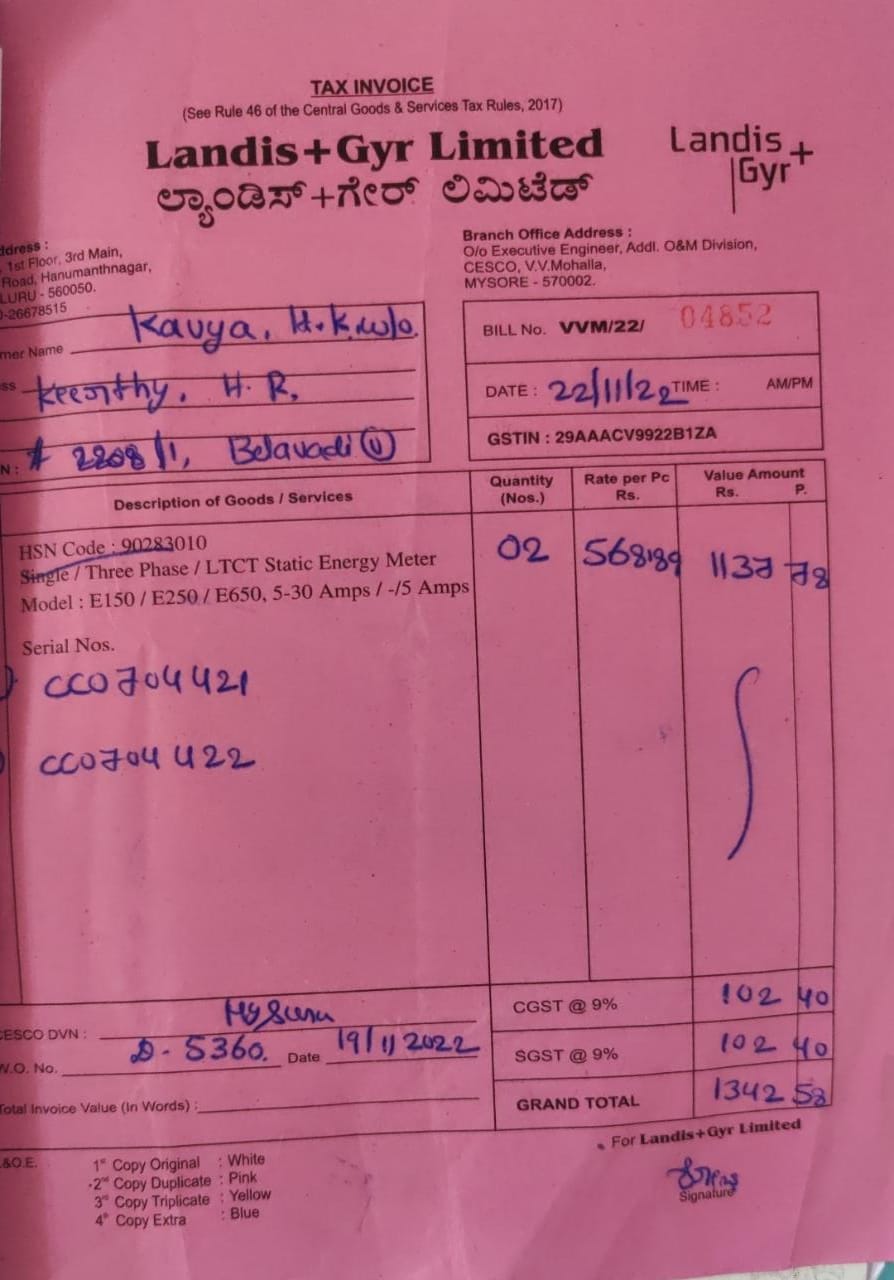 TAX INVOICE
(See Rule 46 of the Central Goods & Services Tax Rules, 2017)
Landis+Gyr Limited
Landis+
Gyr
ಲ್ಯಾಂಡಿಸ್+ಗೇರ್ ಲಿಮಿಟೆಡ್
ddress :
1st Floor, 3rd Main,
Road, Hanumanthnagar,
LURU - 560050.
0-26678515
Branch Office Address :
O/o Executive Engineer, Addl. O&M Division,
CESCO, V.V.Mohalla,
MYSORE - 570002.
mer Name Kavya, H.K. w/o.
ss Keerthy, H.R,
N : # 2208/1, Belavadi (V)
BILL No. VVM/22/ 04852
DATE : 22/11/22 TIME : AM/PM
GSTIN : 29AAACV9922B1ZA
Description of Goods / Services
Quantity (Nos.)
Rate per Pc Rs.
Value Amount Rs. P.
HSN Code : 90283010
Single / Three Phase / LTCT Static Energy Meter
Model : E150 / E250 / E650, 5-30 Amps / -/5 Amps
02 568.89 1137 78
Serial Nos.
CC0704421
CC0704422
CESCO DVN : Mysuru
W.O. No. D-5360. Date 19/11/2022
Total Invoice Value (In Words) :
CGST @ 9% 102 40
SGST @ 9% 102 40
GRAND TOTAL 1342 58
For Landis+Gyr Limited
Signature
.&O.E.
1st Copy Original : White
2nd Copy Duplicate : Pink
3rd Copy Triplicate : Yellow
4th Copy Extra : Blue